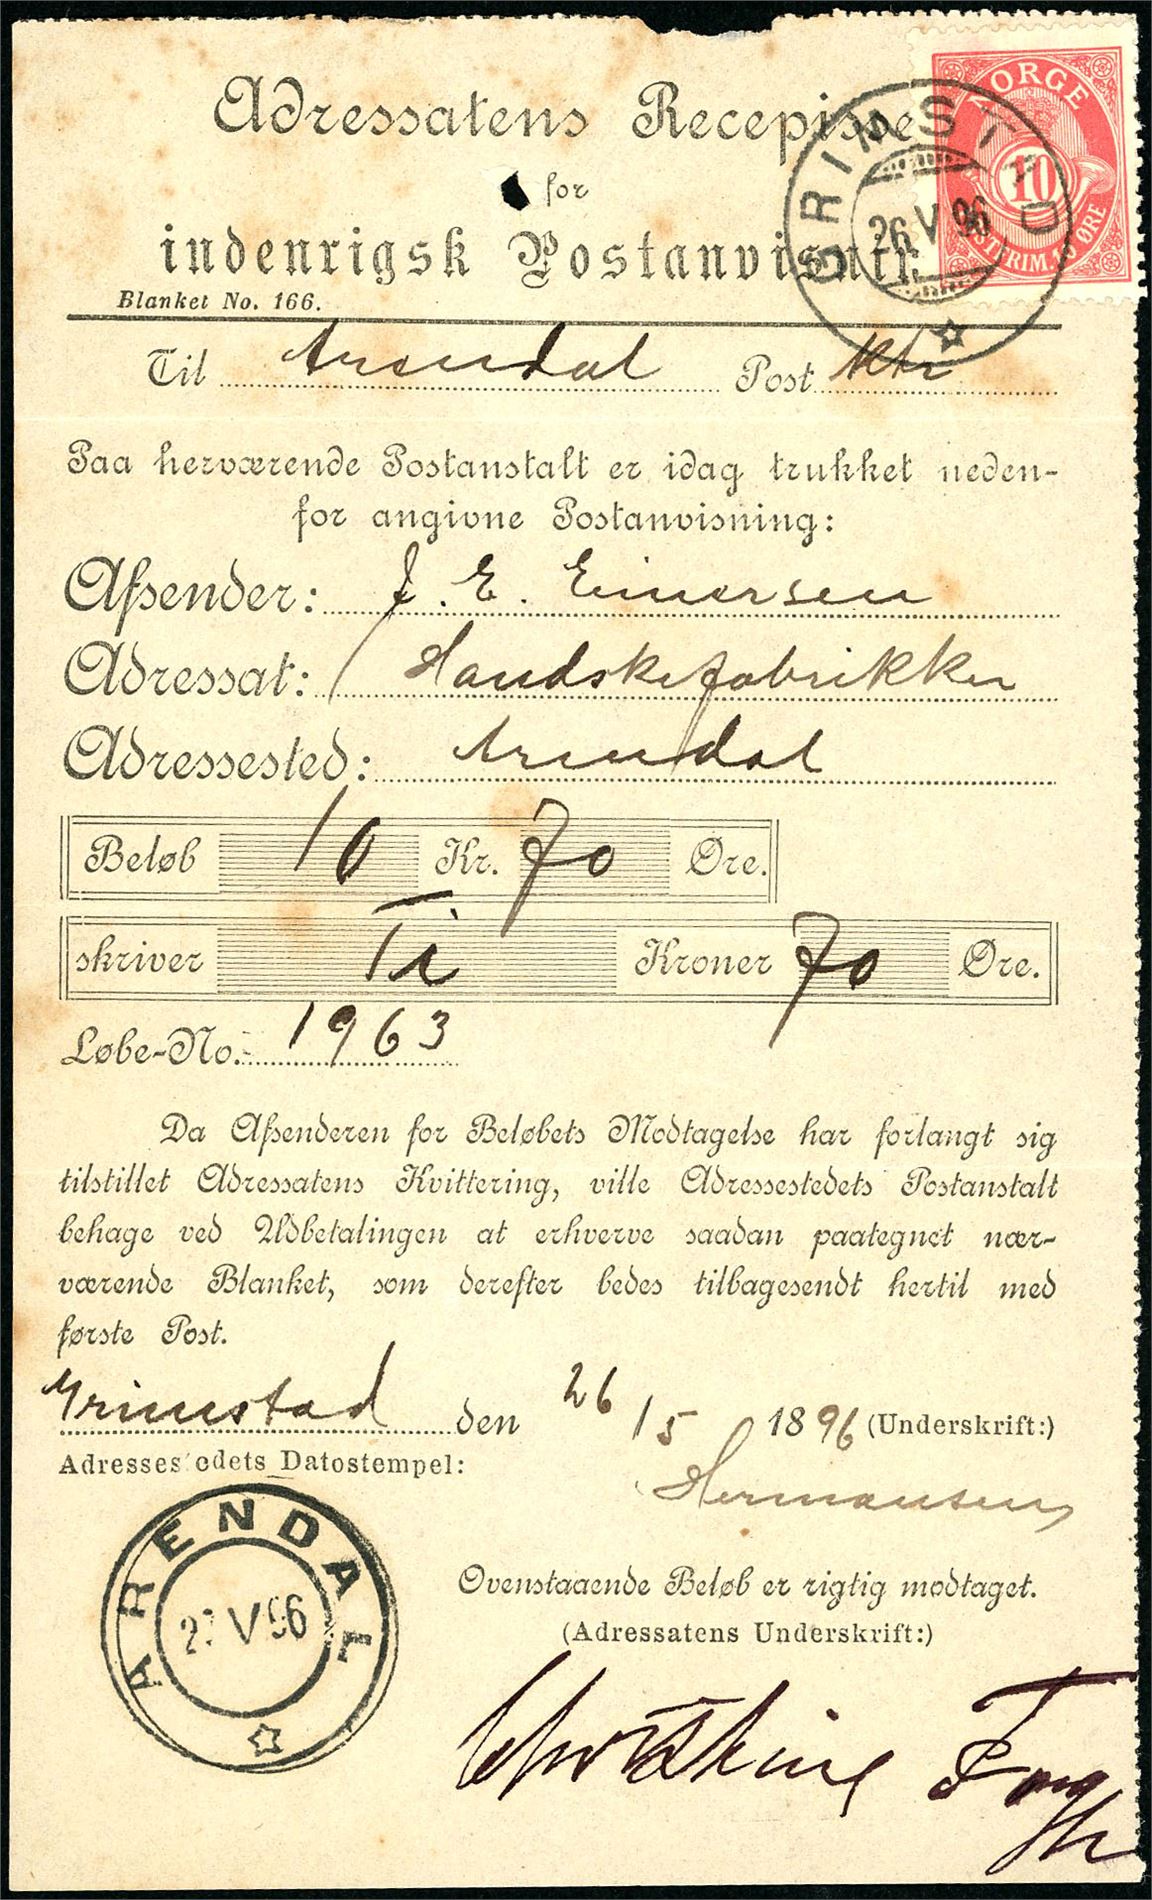 Adressatens Recepisse
for
indenrigsk Postanvisn
Blanket No. 166.
NORGE
10
POSTFRIM. 10 ØRE
GRIMSTAD
26 V 96
Til Arendal Post Ktr
Paa herværende Postanstalt er idag trukket neden-
for angivne Postanvisning:
Afsender: J. E. Einersen
Adressat: Handskefabrikken
Adressested: Arendal
Beløb 10 Kr. 70 Øre.
skriver Ti Kroner 70 Øre.
Løbe-No. 1963
Da Afsenderen for Beløbets Modtagelse har forlangt sig
tilstillet Adressatens Kvittering, ville Adressestedets Postanstalt
behage ved Udbetalingen at erhverve saadan paategnet nær-
værende Blanket, som derefter bedes tilbagesendt hertil med
første Post.
Grimstad den 26/5 1896 (Underskrift:)
Hermansen
Adressestedets Datostempel:
ARENDAL
V 96
Ovenstaaende Beløb er rigtig modtaget.
(Adressatens Underskrift:)